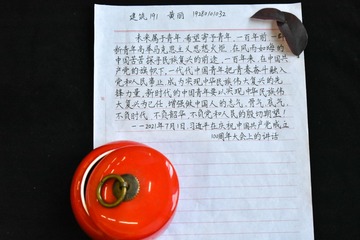 建筑191 黄丽 19280101032
未来属于青年,希望寄予青年。一百年前,一群
新青年高举马克思主义思想火炬,在风雨如晦的
中国苦苦探寻民族复兴的前途。一百年来,在中国共
产党的旗帜下,一代代中国青年把青春奋斗融入
党和人民事业,成为实现中华民族伟大复兴的先
锋力量。新时代的中国青年要以实现中华民族伟
大复兴为己任,增强做中国人的志气、骨气、底气,
不负时代,不负韶华,不负党和人民的殷切期望!
——2021年7月1日,习近平在庆祝中国共产党成立
100周年大会上的讲话